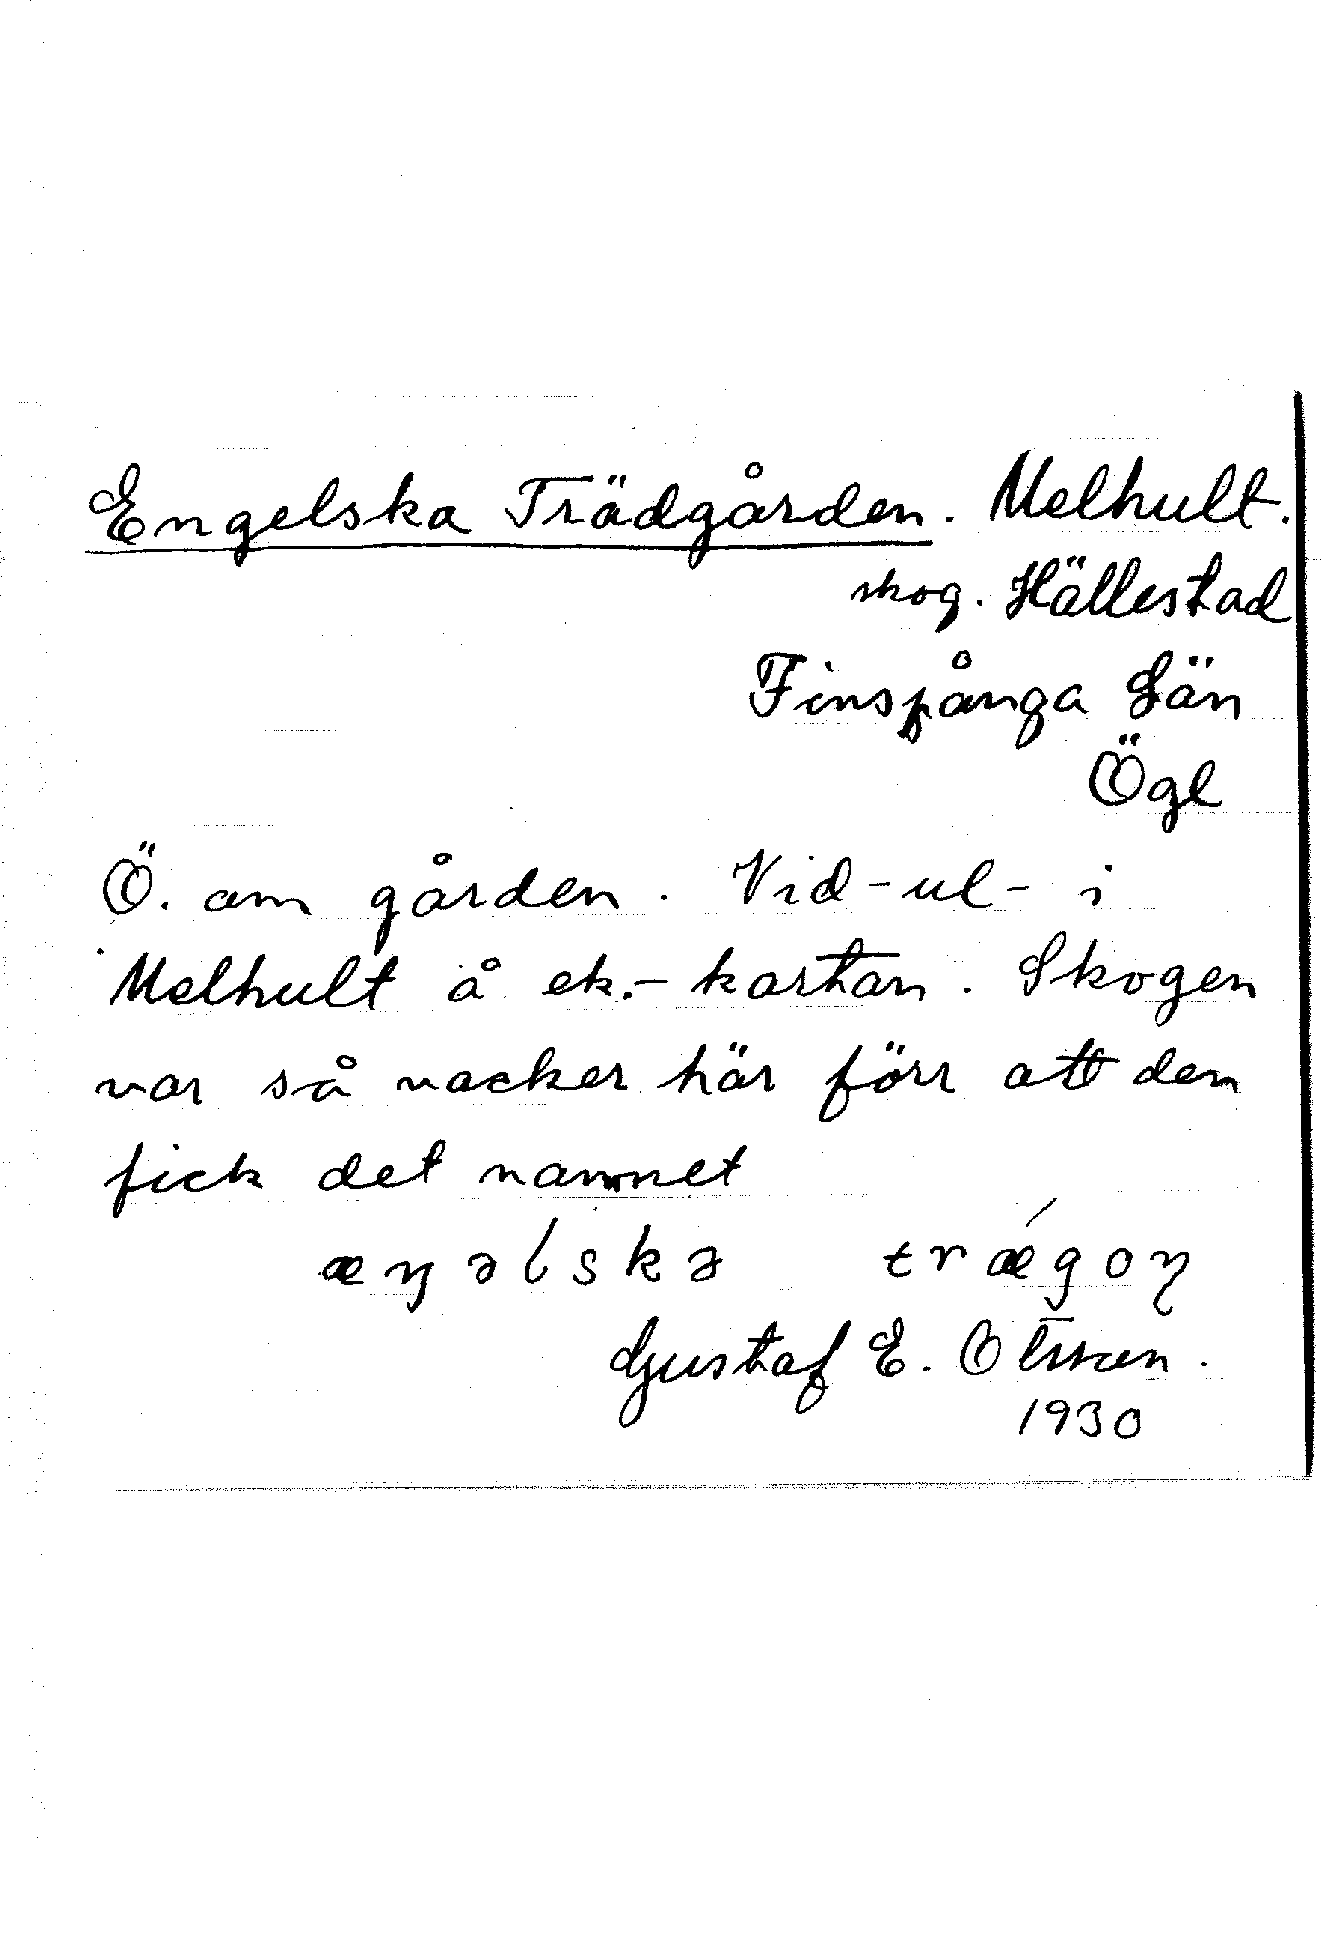 Engelska Trädgården. Melhult.
skog. Hällestad
Finspånga Län
Ögl
Ö. om gården. Vid -ul- i
Melhult å ek.- kartan. Skogen
var så vacker här förr att den
fick det namnet
æŋəlskə trǽgoɳ
Gustaf E. Olsson.
1930